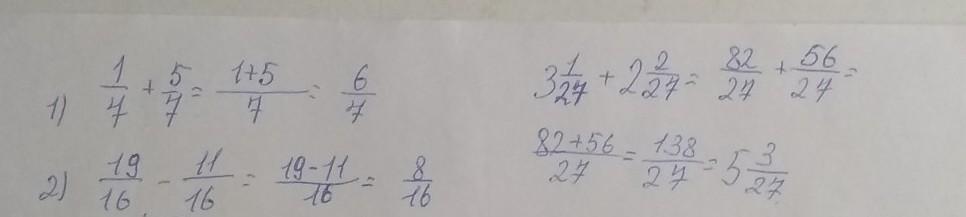 1) 1/7 + 5/7 = (1+5)/7 = 6/7
2) 19/16 - 11/16 = (19-11)/16 = 8/16
3 1/27 + 2 2/27 = 82/27 + 56/27 =
(82+56)/27 = 138/27 = 5 3/27